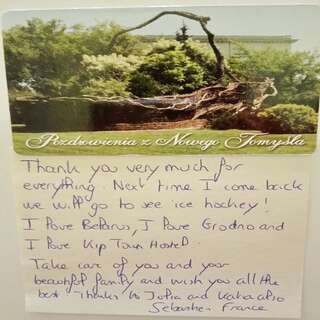 Pozdrowienia z Nowego Tomyśla
Thank you very much for
everything. Next time I come back
we will go to see ice hockey!
I love Belarus, I love Grodno and
I love Kip Town Hostel.
Take care of you and your
beautiful family and wish you all the
best Thanks to Julia and Katia also
Sébastien France